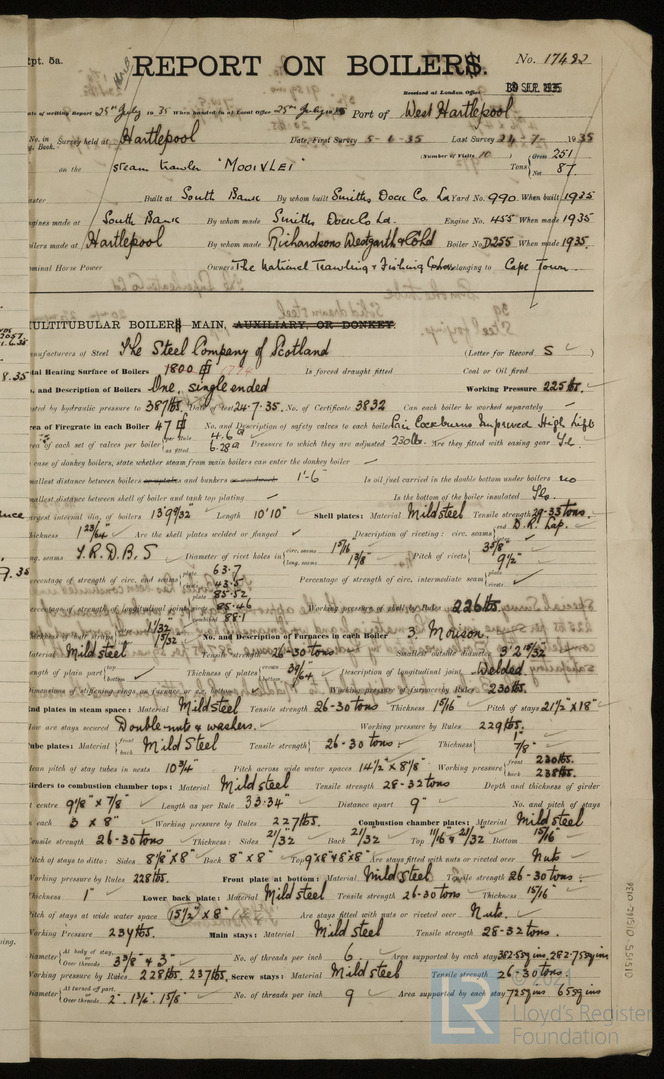 Rpt. 5a.
REPORT ON BOILERS.
No. 17482
Received at London Office
of writing Report 25th July 1935 When handed in at Local Office 25th July 1935 Port of West Hartlepool
No. in Survey held at Hartlepool Date, First Survey 5-6-35 Last Survey 24-7-1935
Book. (Number of Visits 10)
on the steam trawler "MOOIVLEI" Tons Gross 251 Net 87
Built at South Bank By whom built Smiths Dock Co. Ld Yard No. 990 When built 1935
made at South Bank By whom made Smiths Dock Co Ld. Engine No. 455 When made 1935
made at Hartlepool By whom made Richardsons Westgarth & Co Ld Boiler No. D255 When made 1935
Horse Power Owners The National Trawling & Fishing belonging to Cape Town
MULTITUBULAR BOILERS MAIN, AUXILIARY, OR DONKEY.
Manufacturers of Steel The Steel Company of Scotland (Letter for Record S)
Heating Surface of Boilers 1800 Is forced draught fitted Coal or Oil fired
and Description of Boilers One, single ended Working Pressure 225 lbs.
by hydraulic pressure to 387 lbs. Date of test 24.7.35. No. of Certificate 3832 Can each boiler be worked separately
Area of Firegrate in each Boiler 47 No. and Description of safety valves to each boiler Pair Cockburns Improved High Lift
of each set of valves per boiler per Rule 4.6 as fitted 6.28 Pressure to which they are adjusted 230 lbs. Are they fitted with easing gear Ys.
case of donkey boilers, state whether steam from main boilers can enter the donkey boiler
Smallest distance between boilers or uptakes and bunkers or woodwork 1'-6" Is oil fuel carried in the double bottom under boilers no
Smallest distance between shell of boiler and tank top plating Is the bottom of the boiler insulated Yes.
Largest internal dia. of boilers 13'9 9/32" Length 10'10" Shell plates: Material Mild steel Tensile strength 29-33 tons.
Thickness 1 23/64" Are the shell plates welded or flanged Description of riveting: circ. seams end D.R. Lap.
long. seams T.R.D.B.S Diameter of rivet holes in circ. seams 1 5/16" long. seams 1 3/8" Pitch of rivets 3 5/8" 9 1/2"
Percentage of strength of circ. end seams plate 63.7 rivets 43.5 Percentage of strength of circ. intermediate seam plate rivets
Percentage of strength of longitudinal joint plate 85.52 rivets 85.46 combined 88.1 Working pressure of shell by Rules 226 lbs.
Thickness of butt straps 1 1/32" No. and Description of Furnaces in each Boiler 3. Morison.
Material Mild steel Tensile strength 26-30 tons Smallest outside diameter 3'2 15/32"
Length of plain part top bottom Thickness of plates crown bottom 39/64" Description of longitudinal joint Welded.
Dimensions of stiffening rings on furnace or c.c. bottom Working pressure of furnace by Rules 230 lbs.
End plates in steam space: Material Mild steel Tensile strength 26-30 tons Thickness 1 5/16" Pitch of stays 21 1/2" x 18"
How are stays secured Double nuts & washers. Working pressure by Rules 229 lbs.
Tube plates: Material front back Mild Steel Tensile strength 26-30 tons Thickness 1" 7/8"
Mean pitch of stay tubes in nests 10 3/4" Pitch across wide water spaces 14 1/2" x 8 1/8" Working pressure front 230 lbs. back 238 lbs.
Girders to combustion chamber tops: Material Mild steel Tensile strength 28-32 tons Depth and thickness of girder
centre 9 1/8" x 7/8" Length as per Rule 33.34" Distance apart 9" No. and pitch of stays
in each 3 x 8" Working pressure by Rules 227 lbs. Combustion chamber plates: Material Mild steel
Tensile strength 26-30 tons Thickness: Sides 21/32" Back 21/32" Top 11/16" & 21/32" Bottom 15/16"
Pitch of stays to ditto: Sides 8 1/8" x 8" Back 8" x 8" Top 9" x 8" & 8" x 8" Are stays fitted with nuts or riveted over Nuts
Working pressure by Rules 228 lbs. Front plate at bottom: Material Mild steel Tensile strength 26-30 tons.
Thickness 1" Lower back plate: Material Mild steel Tensile strength 26-30 tons Thickness 15/16"
Pitch of stays at wide water space 15 1/2" x 8" Are stays fitted with nuts or riveted over Nuts.
Working Pressure 234 lbs. Main stays: Material Mild steel Tensile strength 28-32 tons.
Diameter At body of stay, or Over threads 3 3/8" & 3" No. of threads per inch 6 Area supported by each stay 382.5 sq ins. 282.75 sq ins
Working pressure by Rules 228 lbs. 237 lbs. Screw stays: Material Mild steel Tensile strength 26-30 tons.
Diameter At turned off part, or Over threads 2". 1 3/4". 1 5/8" No. of threads per inch 9 Area supported by each stay 72 sq ins 65 sq ins
LR
Lloyd's Register
Foundation